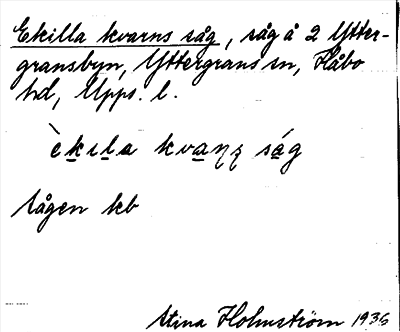 Ekilla kvarns såg, såg å 2 Ytter-
gransbyn, Yttergrans sn, Håbo
hd, Upps. l.
èkıla kvaɳʂ såg
sågen kb
Stina Holmström 1936